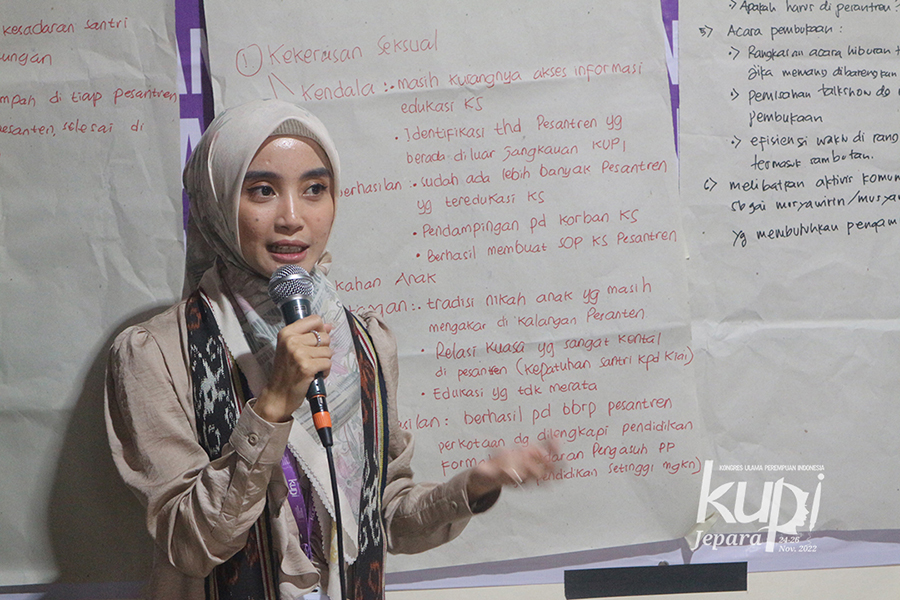 kesadaran santri
ungan
mpah di tiap pesantren
esantren, selesai di
1. Kekerasan Seksual
Kendala : • masih kurangnya akses informasi
edukasi KS
• Identifikasi thd Pesantren yg
berada diluar jangkauan KUPI
berhasilan : • sudah ada lebih banyak Pesantren
yg teredukasi KS
• Pendampingan pd korban KS
• Berhasil membuat SOP KS Pesantren
kahan Anak
: • tradisi nikah anak yg masih
mengakar di kalangan Pesantren
• Relasi Kuasa yg sangat kental
di pesantren (kepatuhan santri kpd kiai)
• Edukasi yg tdk merata
silan : berhasil pd bbrp pesantren
perkotaan dg dilengkapi pendidikan
Form aran Pengasuh PP
pendidikan setinggi mgkn)
• Apakah harus di pesantren ?
5) Acara pembukaan :
•> Rangkaian acara hiburan
jika memang dibarengkan
•> pemisahan talkshow
pembukaan
•> efisiensi waktu di
termasuk sambutan.
6) melibatkan aktivis
sbgai musyawirin/
yg membutuhkan
KONGRES ULAMA PEREMPUAN INDONESIA
kupi
Jepara
24-26
Nov. 2022
kupi